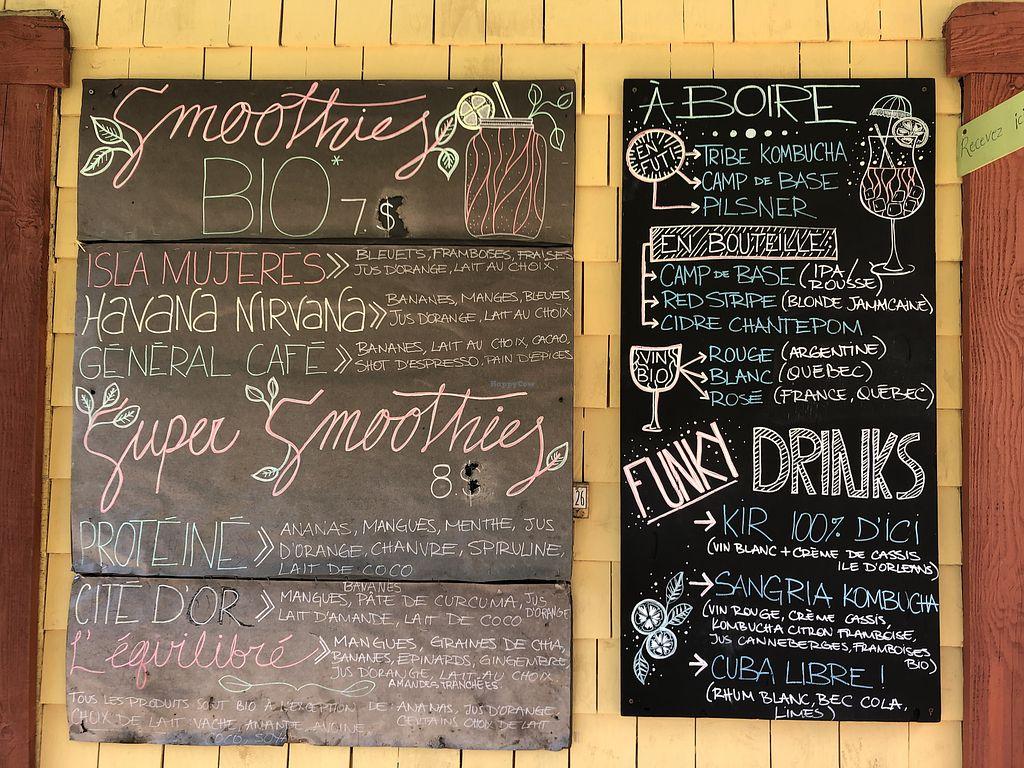 Smoothies
BIO* 7.$
ISLA MUJERES » BLEUETS, FRAMBOISES, FRAISES
JUS D'ORANGE, LAIT AU CHOIX.
HAVANA NIRVANA » BANANES, MANGES, BLEUETS,
JUS D'ORANGE, LAIT AU CHOIX
GÉNÉRAL CAFÉ » BANANES, LAIT AU CHOIX, CACAO,
SHOT D'ESPRESSO, PAIN D'ÉPICES
HappyCow
Super Smoothies
8.$
PROTÉINÉ » ANANAS, MANGUES, MENTHE, JUS
D'ORANGE, CHANVRE, SPIRULINE,
LAIT DE COCO
BANANES
CITÉ D'OR » MANGUES, PÂTE DE CURCUMA, JUS D'ORANGE
LAIT D'AMANDE, LAIT DE COCO
L'équilibré » MANGUES, GRAINES DE CHIA,
BANANES, EPINARDS, GINGEMBRE,
JUS D'ORANGE, LAIT AU CHOIX
AMANDES TRANCHÉES
TOUS LES PRODUITS SONT BIO À L'EXCEPTION DE: ANANAS, JUS D'ORANGE,
CHOIX DE LAIT: VACHE, AMANDE, AVOINE, CERTAINS CHOIX DE LAIT
COCO, SOYA
26
À BOIRE
EN FÛT
TRIBE KOMBUCHA
CAMP DE BASE
PILSNER
EN BOUTEILLE
CAMP DE BASE (IPA/
ROUSSE)
RED STRIPE (BLONDE JAMAICAINE)
CIDRE CHANTEPOM
VINS
BIO
ROUGE (ARGENTINE)
BLANC (QUÉBEC)
ROSÉ (FRANCE, QUÉBEC)
FUNKY DRINKS
KIR 100% D'ICI
(VIN BLANC + CRÈME DE CASSIS
ILE D'ORLEANS)
SANGRIA KOMBUCHA
(VIN ROUGE, CRÈME CASSIS,
KOMBUCHA CITRON FRAMBOISE,
JUS CANNEBERGES, FRAMBOISES
BIO)
CUBA LIBRE!
(RHUM BLANC, BEC COLA,
LIMES)
Recevez ic